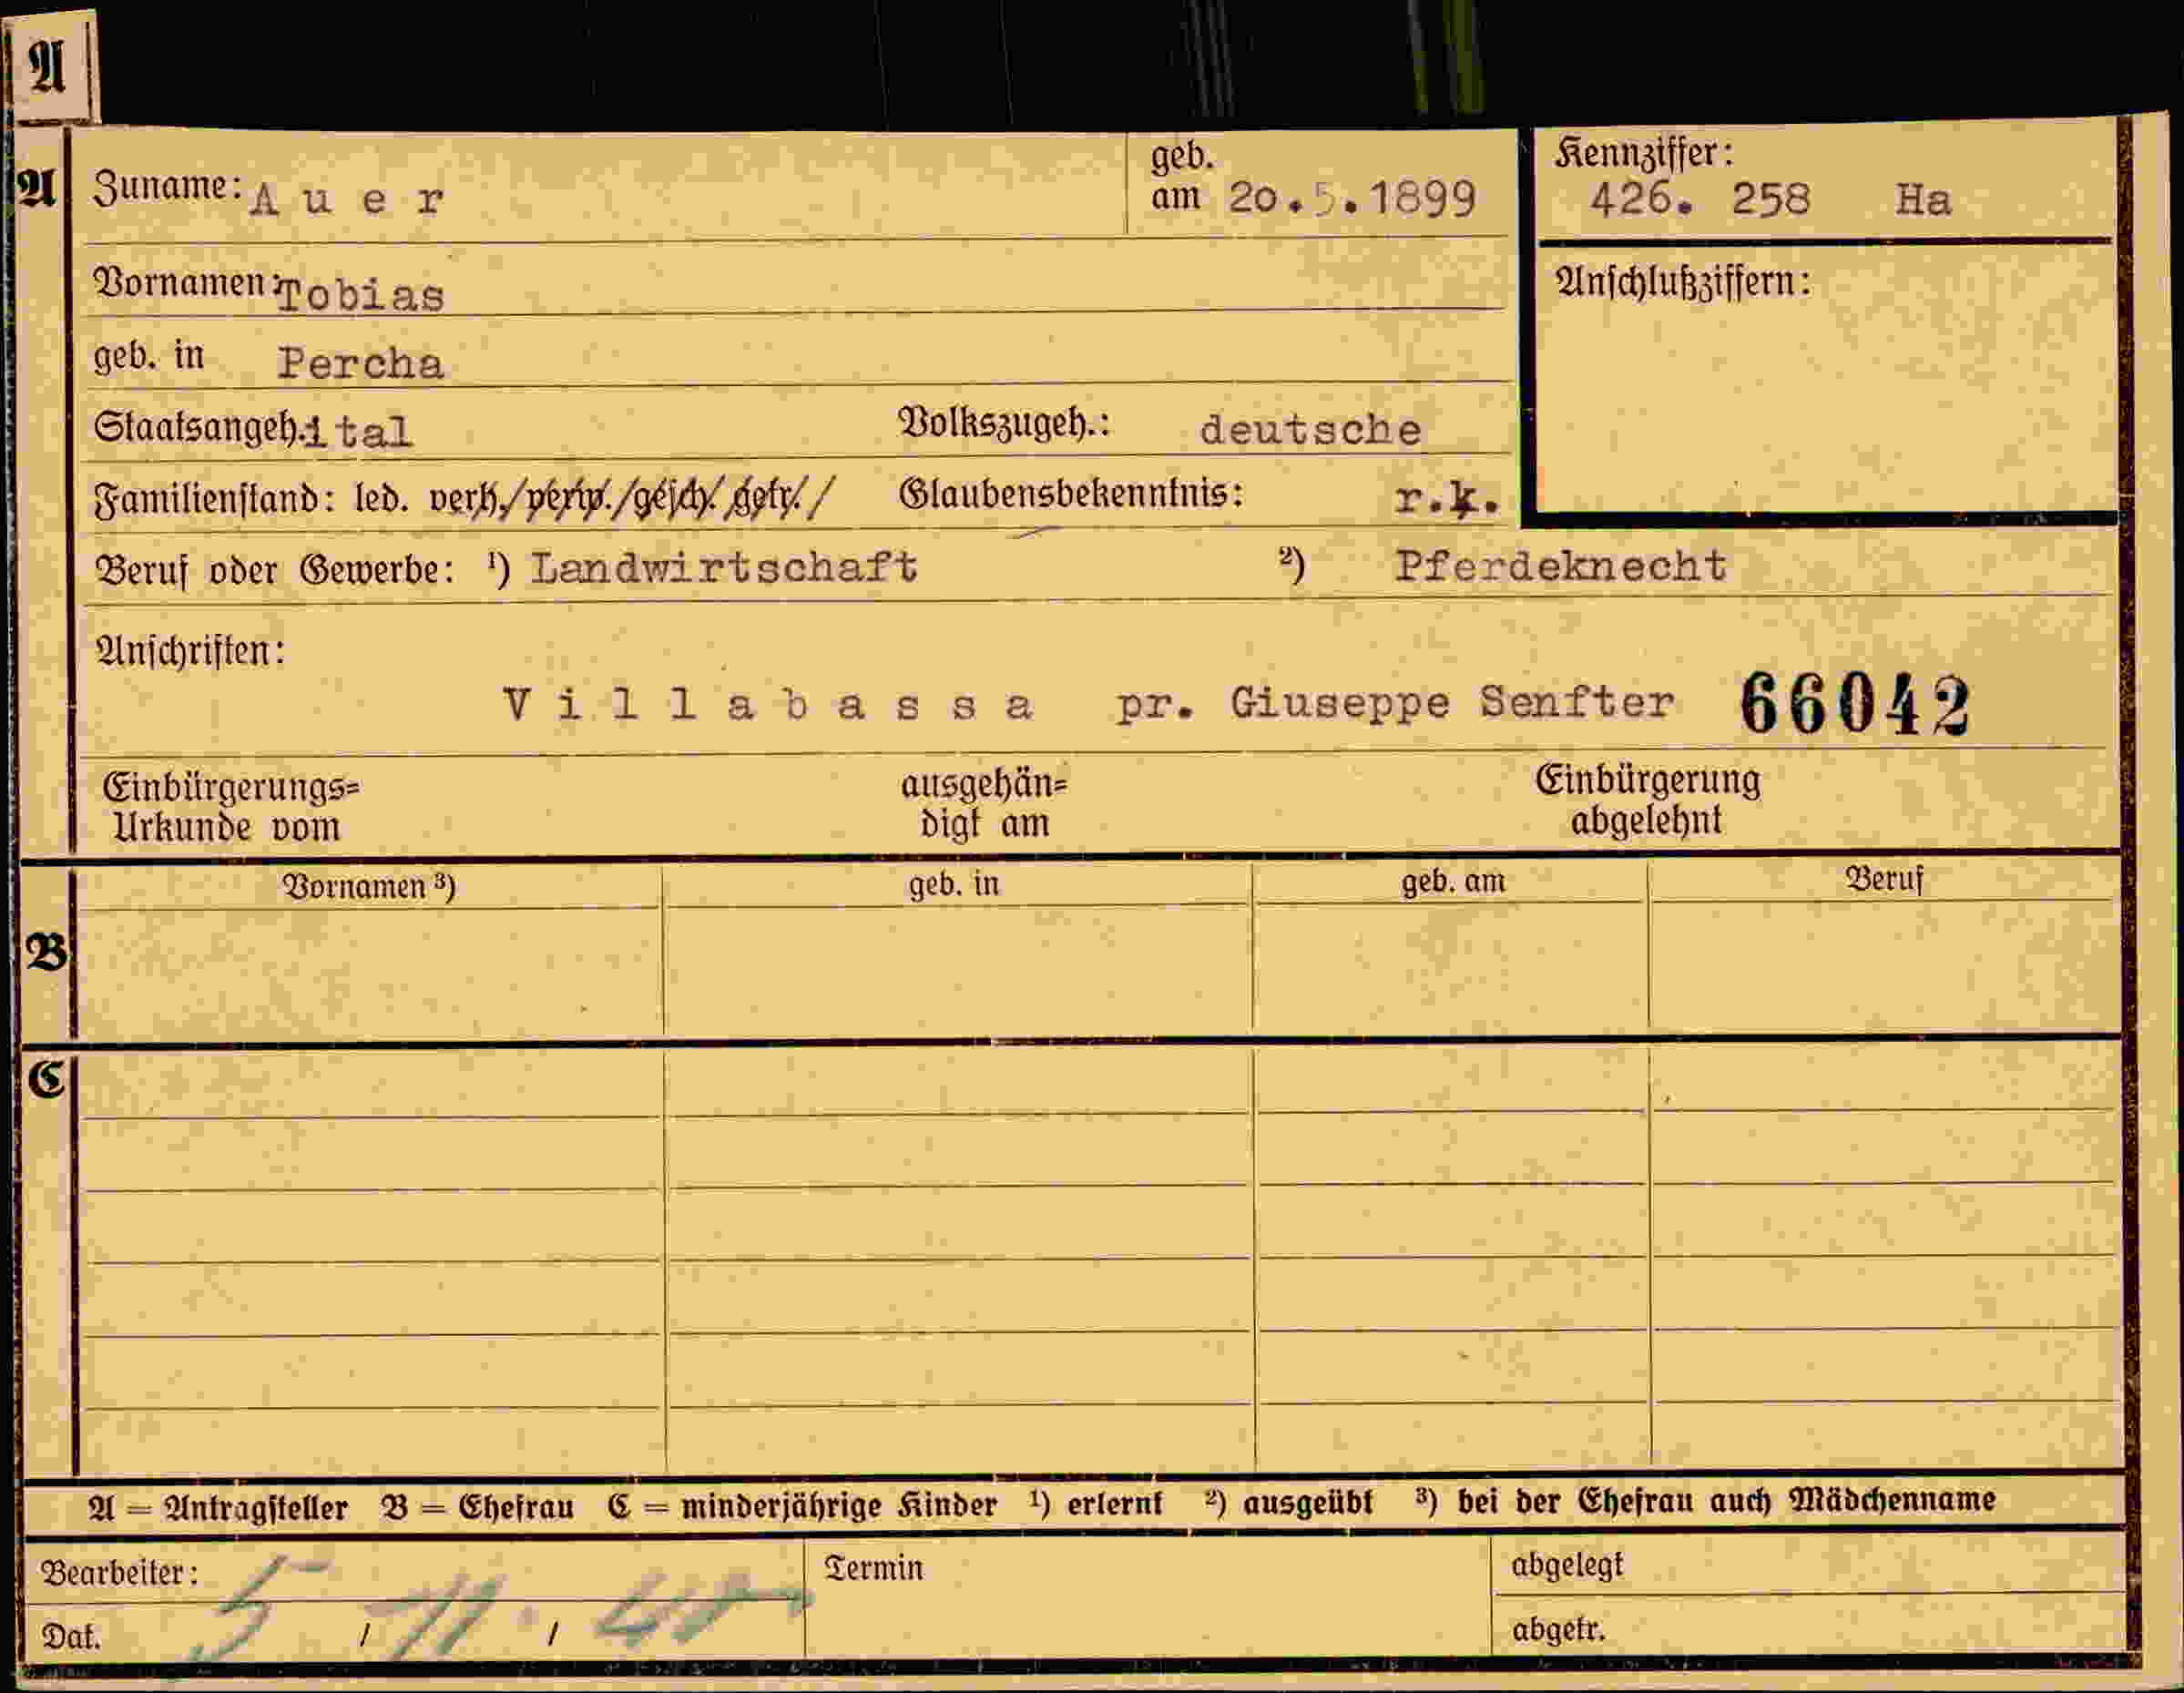 A
A Zuname: A u e r geb. am 20.5.1899 Kennziffer: 426. 258 Ha
Vornamen: Tobias Anschlußziffern:
geb. in Percha
Staatsangeh. ital Volkszugeh.: deutsche
Familienstand: led. verh./verw./gesch./getr./ Glaubensbekenntnis: r.k.
Beruf oder Gewerbe: ¹) Landwirtschaft ²) Pferdeknecht
Anschriften:
V i l l a b a s s a pr. Giuseppe Senfter 66042
Einbürgerungs= ausgehän= Einbürgerung
Urkunde vom digt am abgelehnt
Vornamen ³) geb. in geb. am Beruf
B
C
A = Antragsteller B = Ehefrau C = minderjährige Kinder ¹) erlernt ²) ausgeübt ³) bei der Ehefrau auch Mädchenname
Bearbeiter: Termin abgelegt
Dat. 5 / 11. / abgetr.